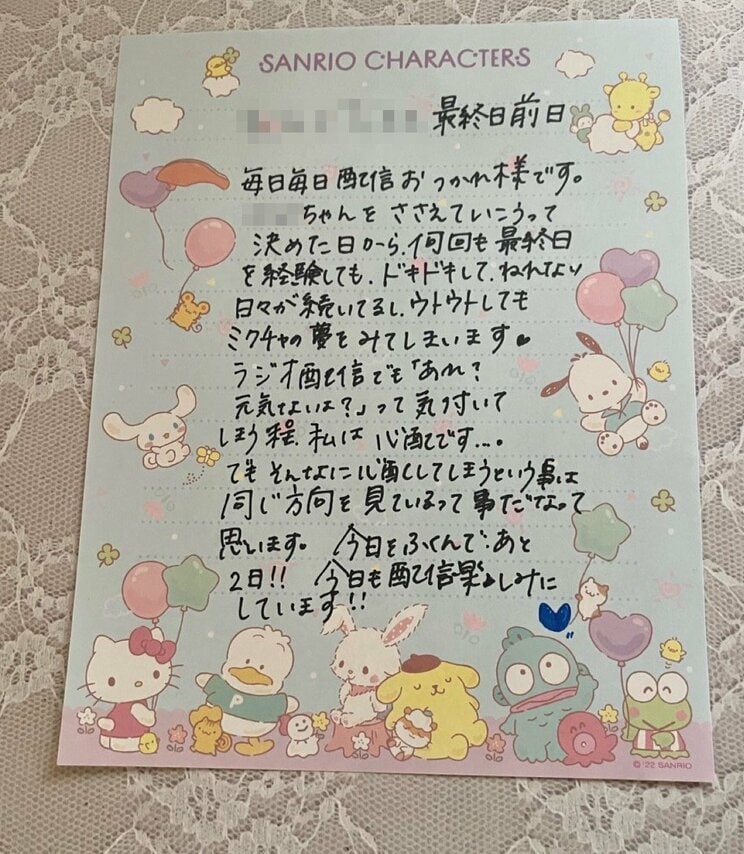 SANRIO CHARACTERS
最終日前日
毎日毎日配信おつかれ様です。
ちゃんを ささえていこうって
決めた日から、何回も最終日
を経験しても、ドキドキして、ねれない
日々が続いてるし、ウトウトしても
ミクチャの夢をみてしまいます♥
ラジオ配信でも「あれ?
元気ないは?」って気付いて
しまう程、私は心配です…。
でもそんなに心配してしまうという事は
同じ方向を見ているって事だなって
思います。 今日をふくんで、あと
2日!! 今日も配信楽しみに
しています!!
P
© '22 SANRIO